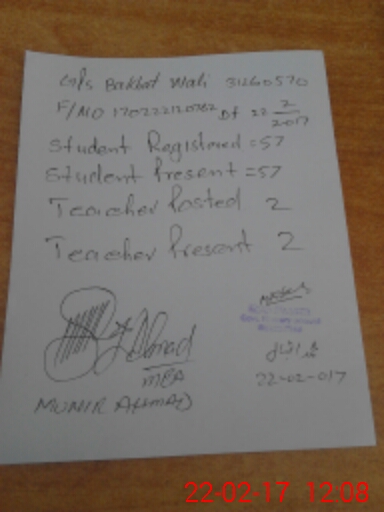 G/s Bakhat Wali 31260570
F/MO 170222120762 Df 22 2/2017
Student Registered = 57
Student Present = 57
Teacher Posted 2
Teacher Present 2
Ahmad
MEA
MUNIR AHMAD
22-02-017
22-02-17 12:08